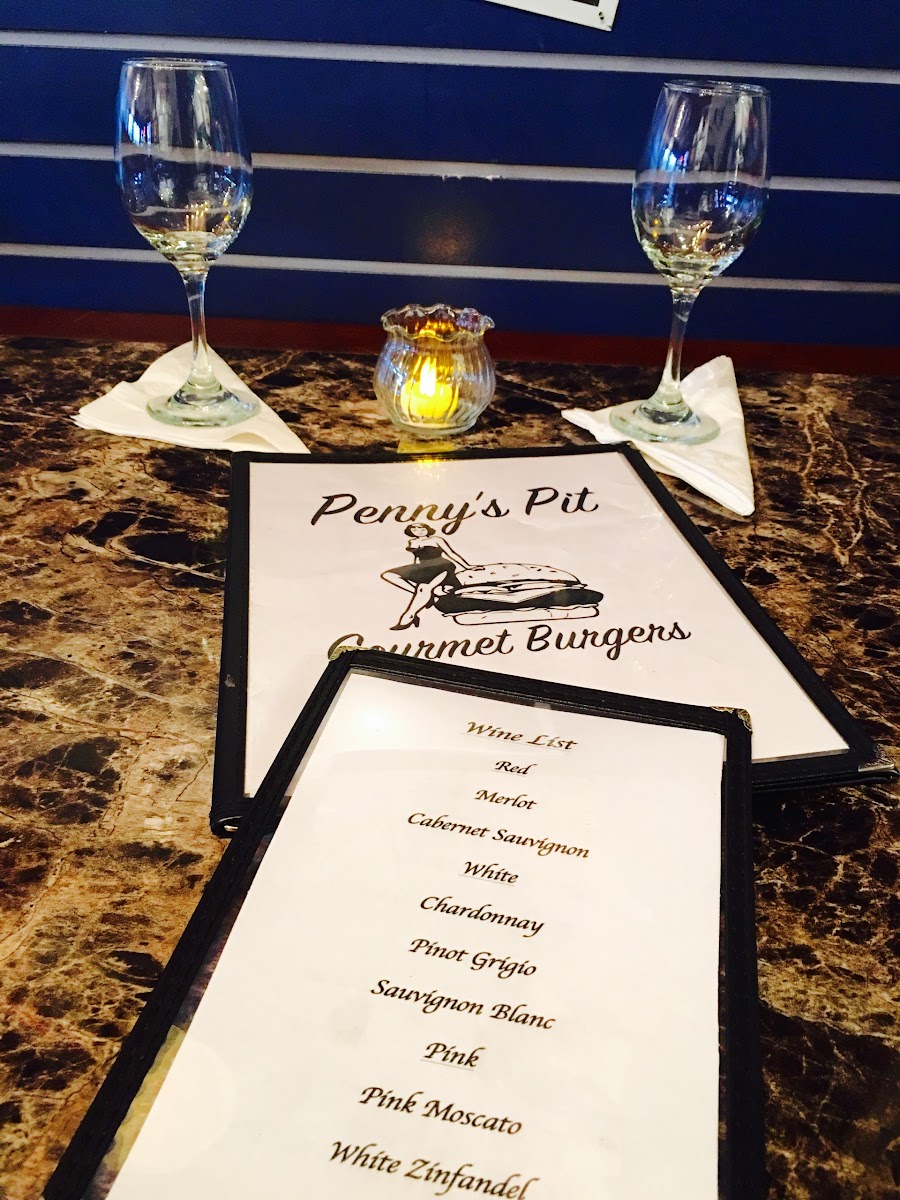 Penny's Pit
Gourmet Burgers
Wine List
Red
Merlot
Cabernet Sauvignon
White
Chardonnay
Pinot Grigio
Sauvignon Blanc
Pink
Pink Moscato
White Zinfandel